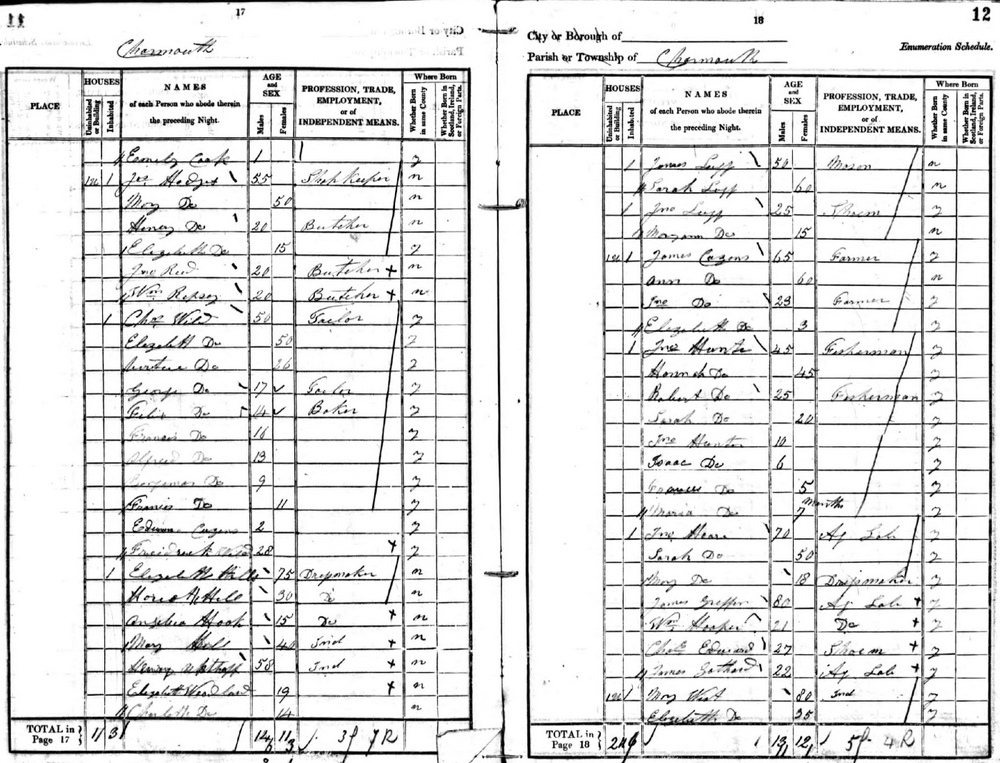 17
Charmouth
HOUSES
AGE and SEX
Where Born
PLACE
Uninhabited or Building
Inhabited
NAMES of each Person who abode therein the preceding Night.
Males
Females
PROFESSION, TRADE, EMPLOYMENT, or of INDEPENDENT MEANS.
Whether Born in same County
Whether Born in Scotland, Ireland, or Foreign Parts.
Emily Cook 1 y
1 Jos Hodges 55 Shop Keeper n
Mary Do 50 n
Henry Do 20 Butcher n
Elizabeth Do 15 y
Jno 20 Butcher + n
Wm 20 Butcher + n
1 Chas Wild 50 Tailor y
Elizabeth Do 50 y
Do 26 y
George Do 17 Tailor y
Felix Do 14 Baker y
Francis Do 16 y
Alfred Do 13 y
Benjamin Do 9 y
Do 11 y
2 y
28 + y
1 Elizabeth 75 Dressmaker n
Hill 30 Do n
15 Do + n
Mary 40 Ind + n
Henry 58 Ind + n
Elizabeth Woodland 19 + n
Charlotte Do 14 n
TOTAL in Page 17
18
12
City or Borough of
Parish or Township of Charmouth
Enumeration Schedule.
HOUSES
AGE and SEX
Where Born
PLACE
Uninhabited or Building
Inhabited
NAMES of each Person who abode therein the preceding Night.
Males
Females
PROFESSION, TRADE, EMPLOYMENT, or of INDEPENDENT MEANS.
Whether Born in same County
Whether Born in Scotland, Ireland, or Foreign Parts.
1 James Lupp 50 Mason n
Sarah Lupp 60 n
1 Jno Lupp 25 Shoem y
Maryann Do 15 n
1 James Cozens 65 Farmer y
Ann Do 60 n
Jno Do 23 Farmer y
Elizabeth Do 3 y
1 Jno Hunter 45 Fisherman y
Hannah Do 45 y
Robert Do 25 Fisherman y
Sarah Do 20 y
Jno Hunter 10 y
Isaac Do 6 y
Do 5 y
Maria Do 7 months y
1 Jno 70 Ag Lab y
Sarah Do 50 y
Mary Do 18 Dressmaker y
James 80 Ag Lab + y
Wm Hooper 21 Do + y
Chas Edward 27 Shoem + y
James Gothard 22 Ag Lab + y
1 Mary West 80 Ind y
Elizabeth Do 35 y
TOTAL in Page 18